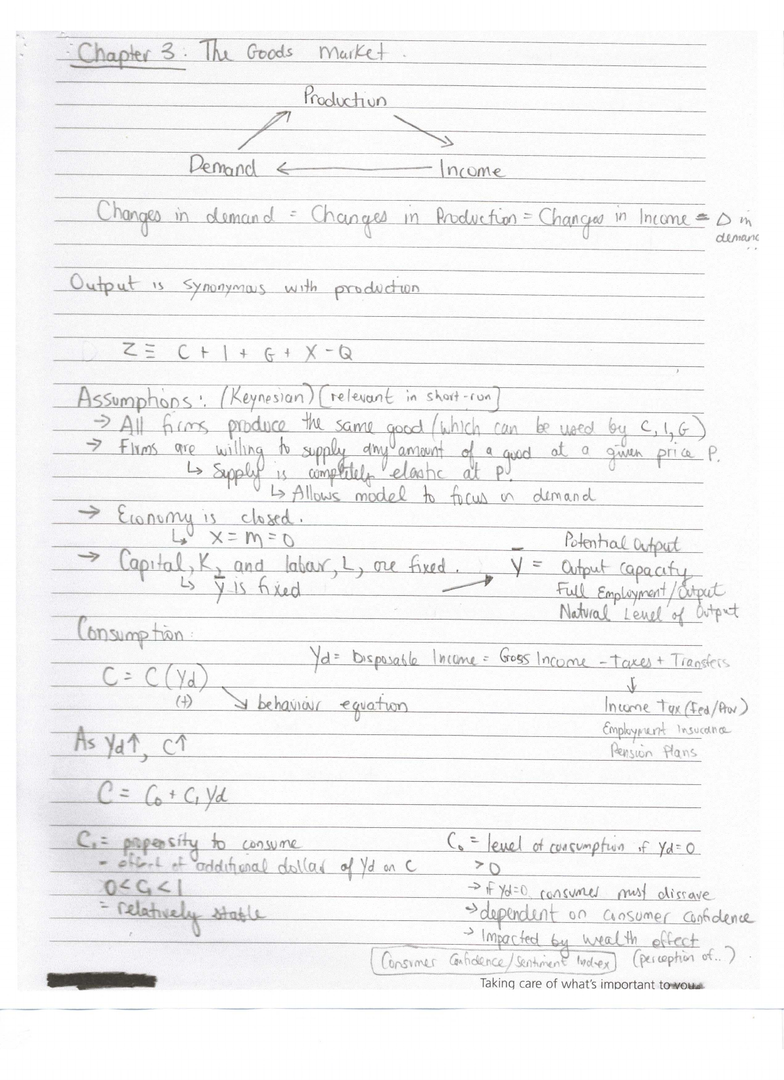 Chapter 3: The Goods Market.
Production
Demand ← Income
Changes in demand = Changes in Production = Changes in Income = Δ in
demand
Output is synonymous with production
Z ≡ C + I + G + X - Q
Assumptions: (Keynesian) [relevant in short-run]
→ All firms produce the same good (which can be used by C, I, G)
→ Firms are willing to supply any amount of a good at a given price P.
↳ Supply is completely elastic at P.
↳ Allows model to focus on demand
→ Economy is closed.
↳ X = M = 0
→ Capital, K, and labour, L, are fixed.
↳ Ȳ is fixed
Potential Output
Ȳ = Output capacity
Full Employment/Output
Natural Level of Output
Consumption:
Yd = Disposable Income = Gross Income - Taxes + Transfers
C = C(Yd)
(+) ↘ behaviour equation
↓
Income Tax (Fed/Prov)
Employment Insurance
Pension Plans
As Yd↑, C↑
C = C₀ + C₁Yd
C₁ = propensity to consume
= effect of additional dollar of Yd on C
0 < C₁ < 1
= relatively stable
C₀ = level of consumption if Yd=0
>0
→ if Yd=0, consumer must dissave
→ dependent on consumer confidence
→ Impacted by wealth effect
Consumer Confidence/Sentiment Index (perception of..)
Taking care of what's important to you